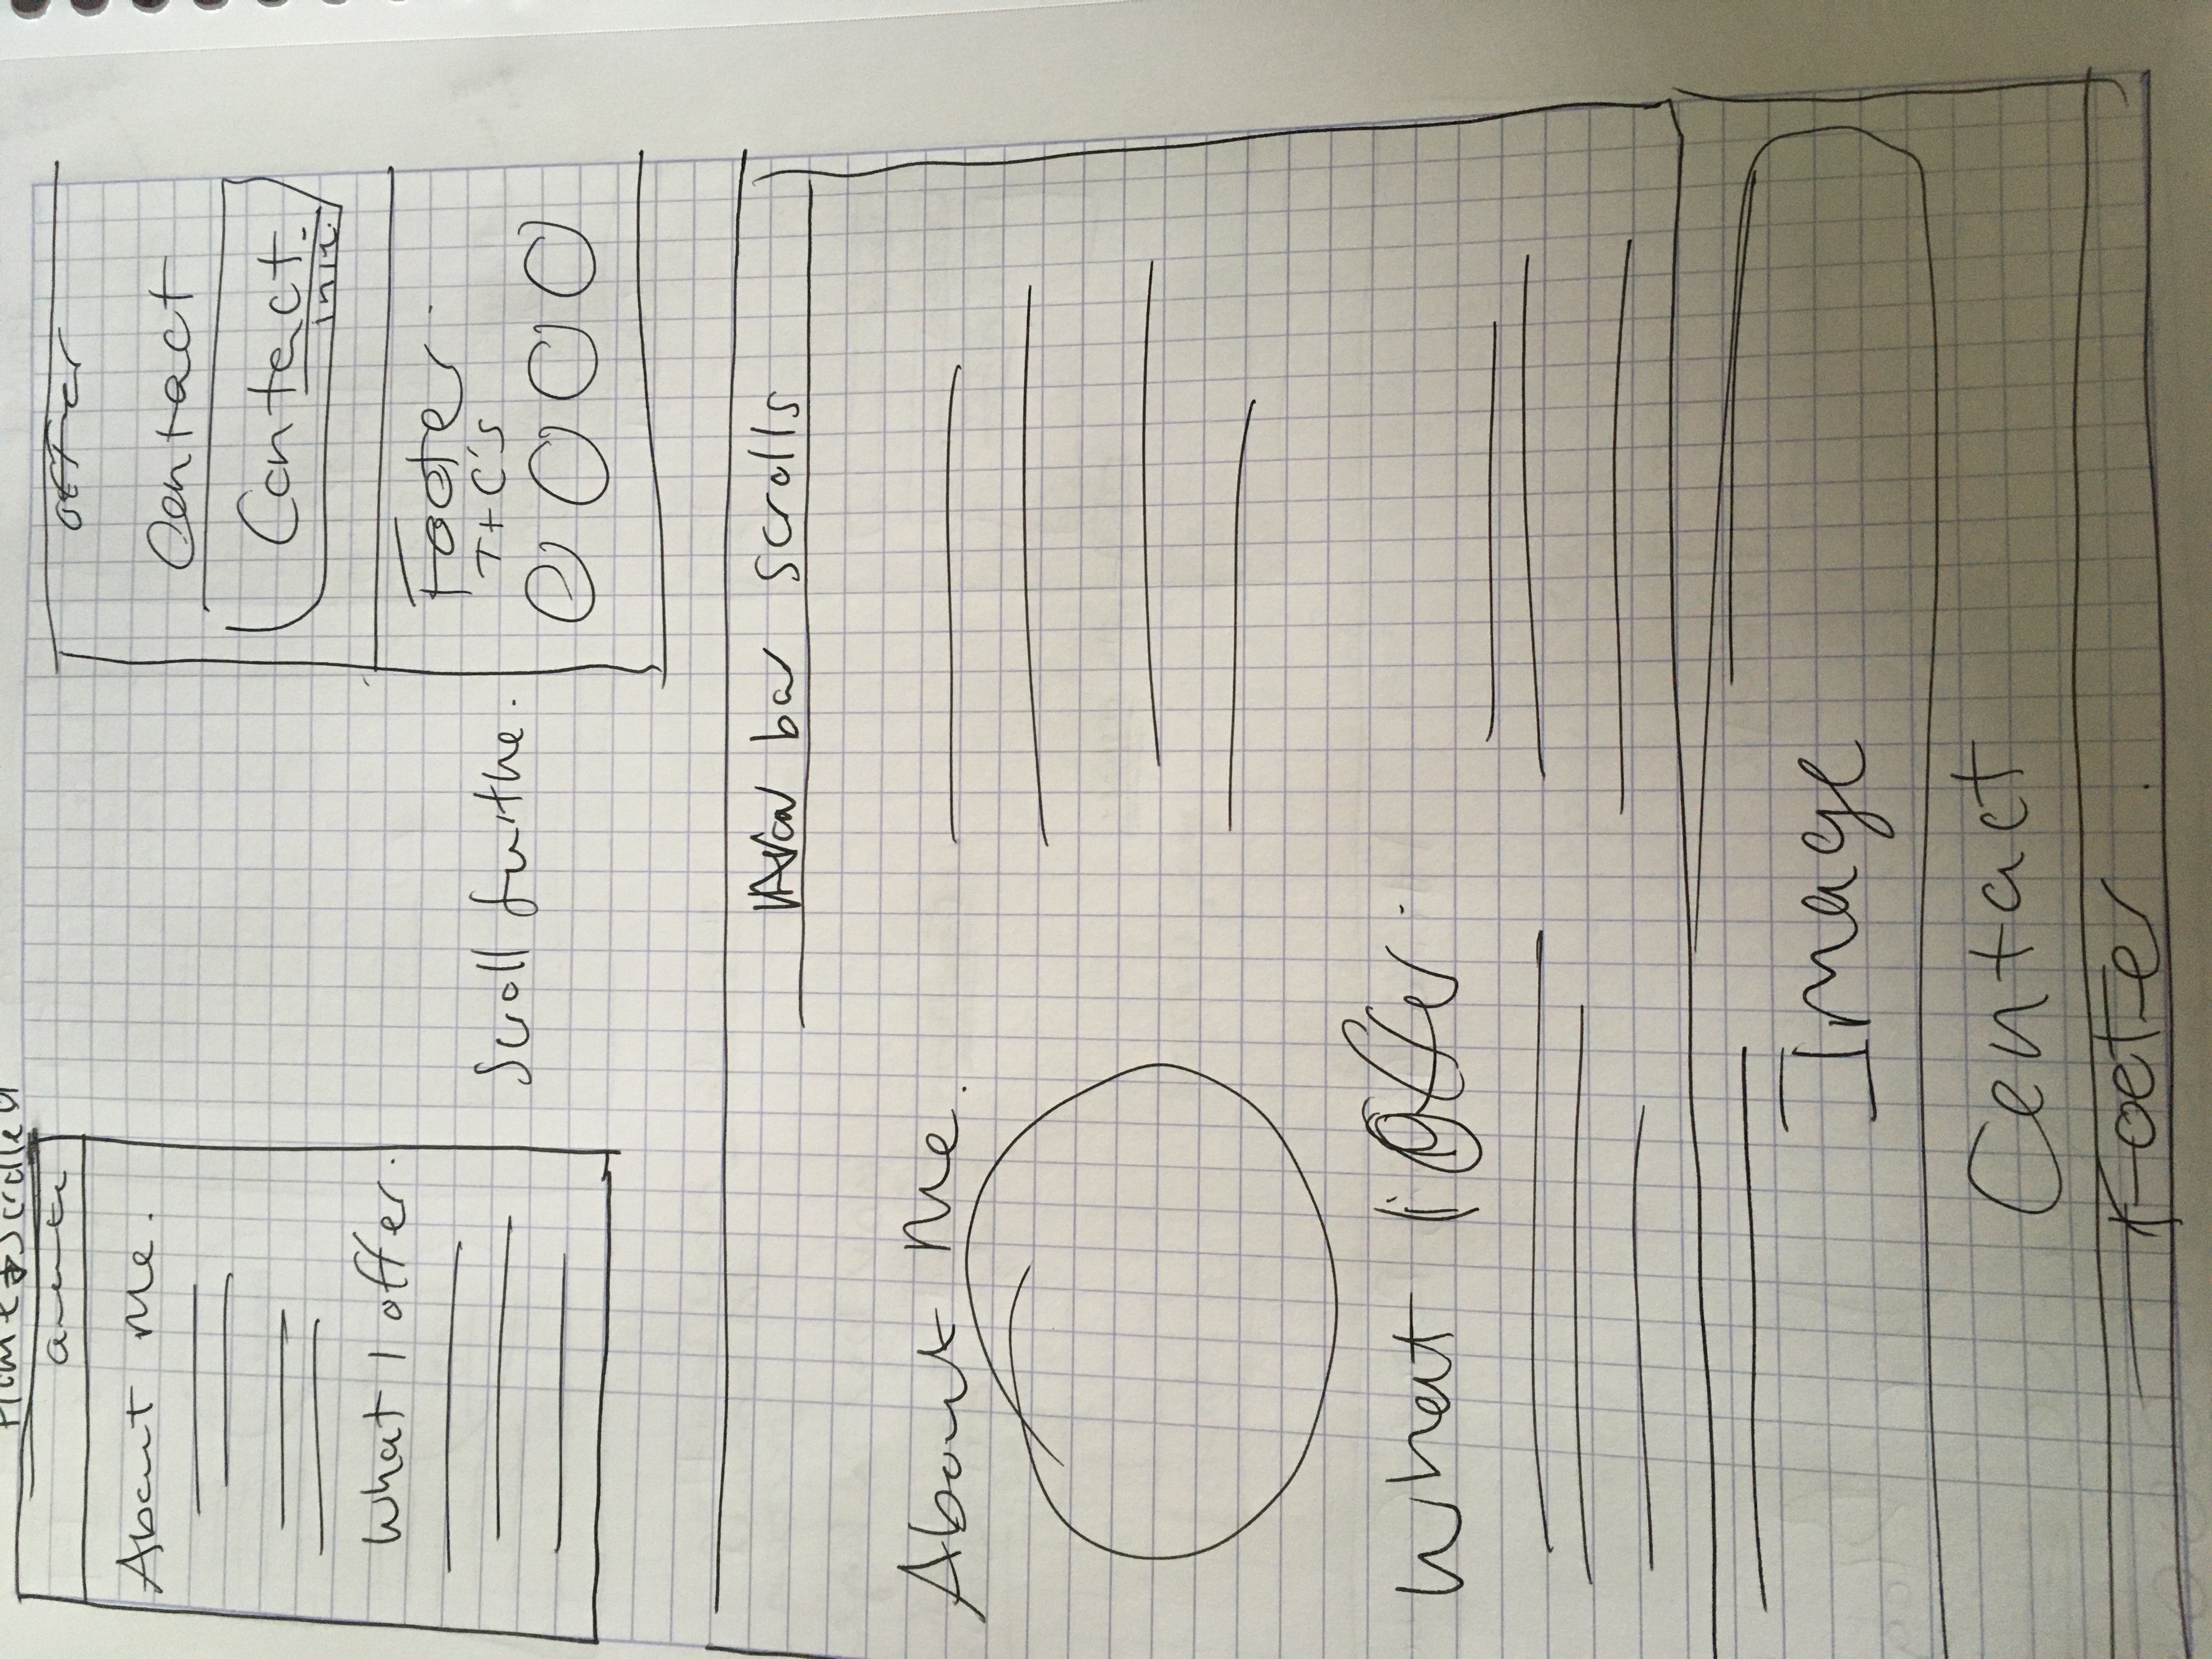 Home Scrolled
About Me.
What I offer.
Scroll furthe.
offer
Contact
Contact.
Footer.
T+C's
Nav bar scrolls
About Me.
What I Offer.
Image
Contact
Footer